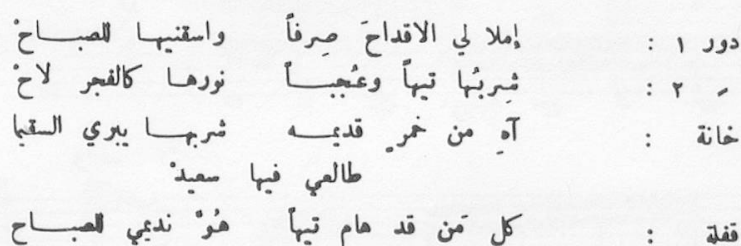 دور ١ : إملا لي الاقداحَ صِرفاً واسقنيها للصباحْ
ـ ٢ : شِربُها تيهاً وعُجباً نورها كالفجر لاحْ
خانة : آهِ من خمرٍ قديمه شربها يبري السقيا
طالعي فيها سعيدْ
قفلة : كل مَن قد هام تيهاً هُوْ نديمي للصباح